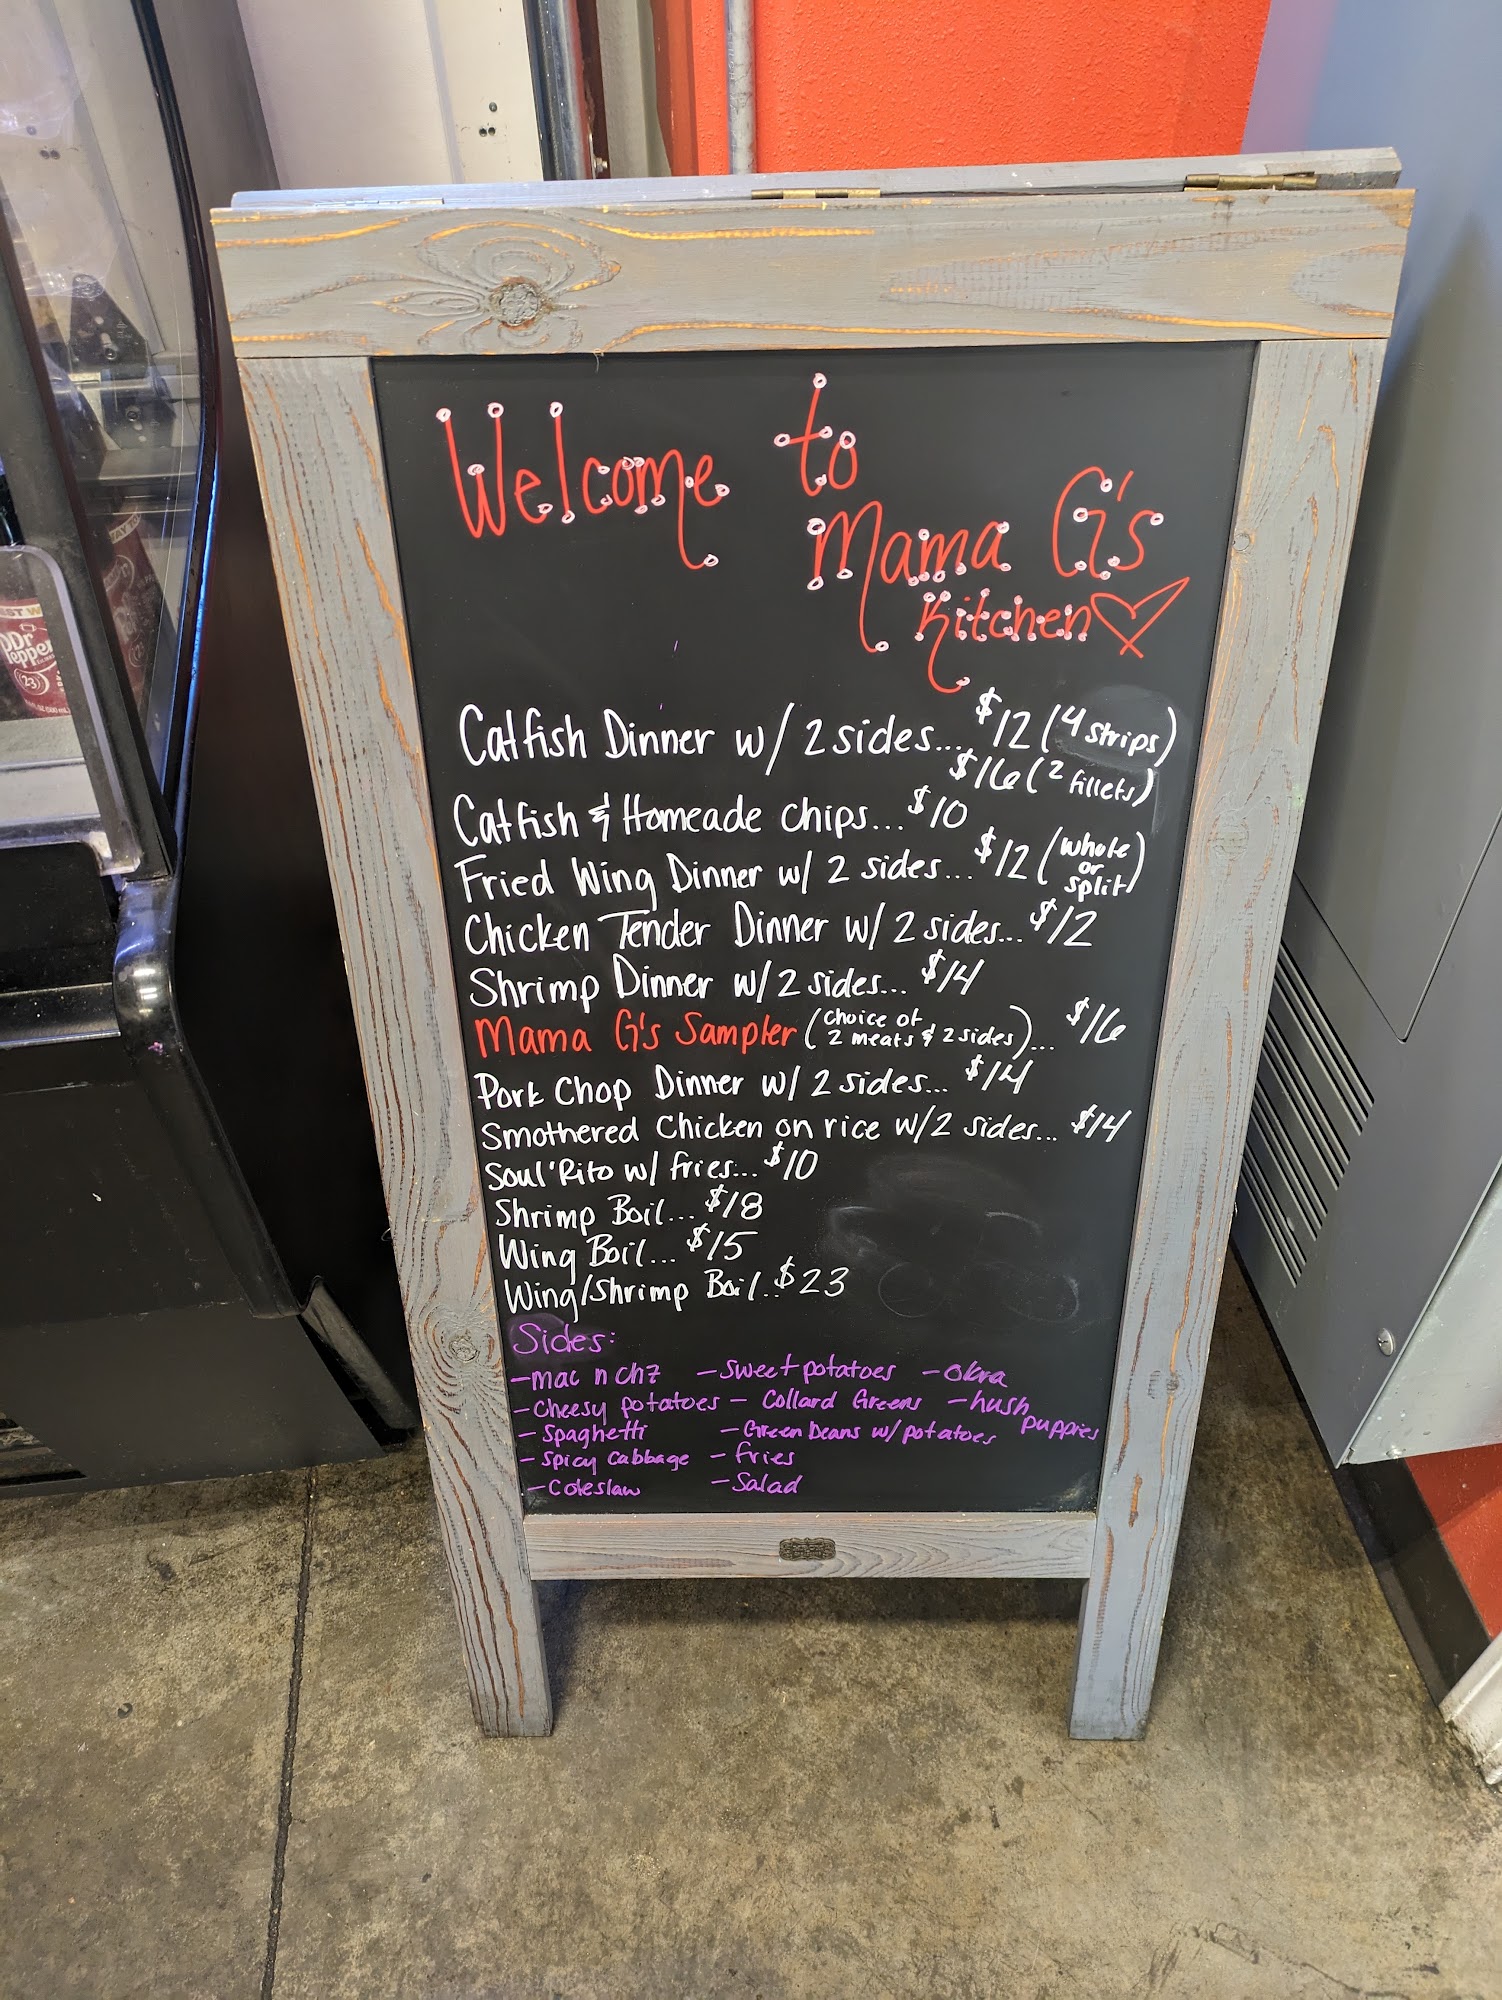 Welcome to
Mama G's
Kitchen
Catfish Dinner w/ 2 sides... $12 (4 strips)
$16 (2 fillets)
Catfish & Homeade Chips... $10
Fried Wing Dinner w/ 2 sides... $12 (whole or split)
Chicken Tender Dinner w/ 2 sides... $12
Shrimp Dinner w/ 2 sides... $14
Mama G's Sampler (choice of 2 meats & 2 sides)... $16
Pork Chop Dinner w/ 2 sides... $14
Smothered Chicken on rice w/ 2 sides... $14
Soul'Rito w/ fries... $10
Shrimp Boil... $18
Wing Boil... $15
Wing/Shrimp Boil.. $23
Sides:
- mac n chz - sweet potatoes - okra
- Cheesy potatoes - Collard Greens - hush puppies
- Spaghetti - Green beans w/ potatoes
- Spicy Cabbage - fries
- Coleslaw - Salad
Dr Pepper
23